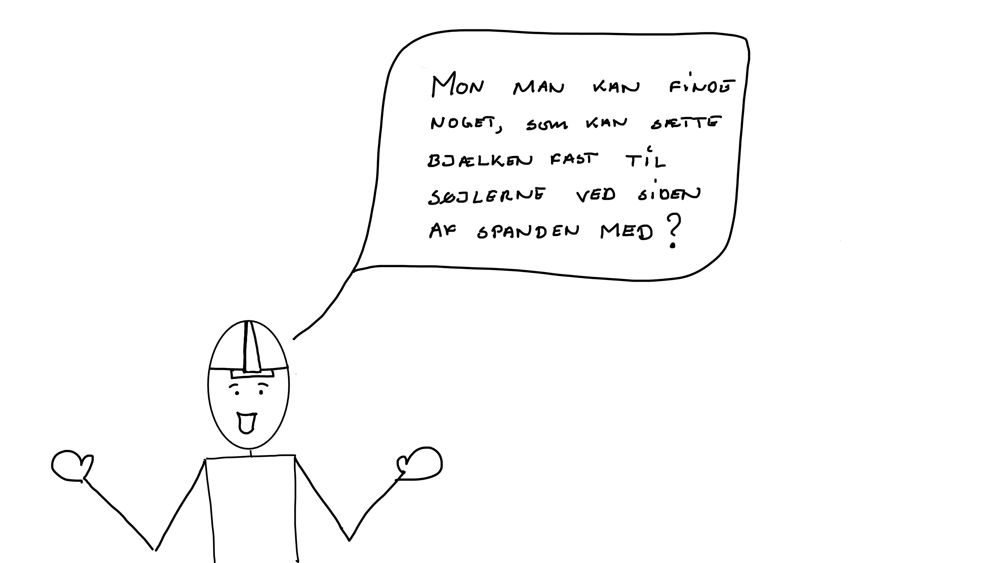 MON MAN KAN FINDE
NOGET, SOM KAN SÆTTE
BJÆLKEN FAST TIL
SØJLERNE VED SIDEN
AF SPANDEN MED?